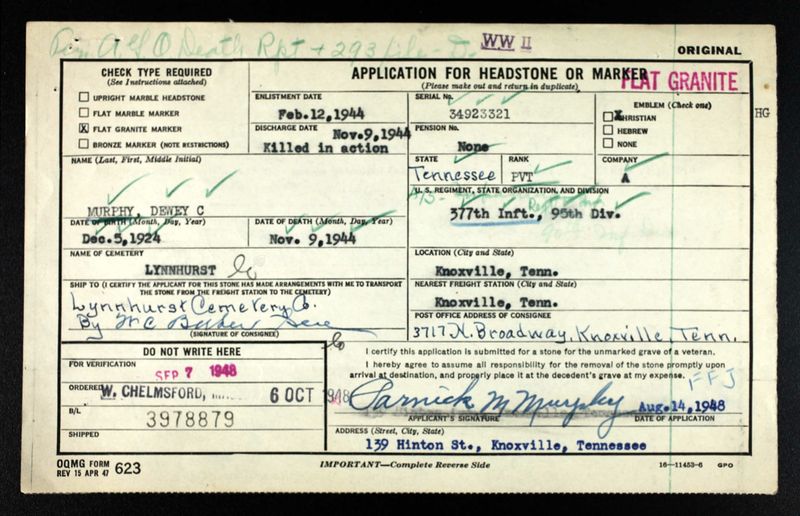 Death Rpt + 293 file
WW II
ORIGINAL
CHECK TYPE REQUIRED
(See Instructions attached)
UPRIGHT MARBLE HEADSTONE
FLAT MARBLE MARKER
X FLAT GRANITE MARKER
BRONZE MARKER (NOTE RESTRICTIONS)
APPLICATION FOR HEADSTONE OR MARKER
(Please make out and return in duplicate)
FLAT GRANITE
ENLISTMENT DATE
Feb.12,1944
DISCHARGE DATE
Nov.9,1944
Killed in action
SERIAL No.
34923321
PENSION No.
None
EMBLEM (Check one)
X CHRISTIAN
HEBREW
NONE
HG
STATE
Tennessee
RANK
PVT
COMPANY
A
NAME (Last, First, Middle Initial)
MURPHY, DEWEY C
U. S. REGIMENT, STATE ORGANIZATION, AND DIVISION
377th Inft., 95th Div.
DATE OF BIRTH (Month, Day, Year)
Dec.5,1924
DATE OF DEATH (Month, Day, Year)
Nov. 9,1944
NAME OF CEMETERY
LYNNHURST
LOCATION (City and State)
Knoxville, Tenn.
SHIP TO (I CERTIFY THE APPLICANT FOR THIS STONE HAS MADE ARRANGEMENTS WITH ME TO TRANSPORT
THE STONE FROM THE FREIGHT STATION TO THE CEMETERY)
Lynnhurst Cemetery Co.
By
(SIGNATURE OF CONSIGNEE)
NEAREST FREIGHT STATION (City and State)
Knoxville, Tenn.
POST OFFICE ADDRESS OF CONSIGNEE
3717 N. Broadway, Knoxville, Tenn.
DO NOT WRITE HERE
FOR VERIFICATION
SEP 7 1948
ORDERED
W. CHELMSFORD, 6 OCT 1948
B/L
3978879
SHIPPED
I certify this application is submitted for a stone for the unmarked grave of a veteran.
I hereby agree to assume all responsibility for the removal of the stone promptly upon
arrival at destination, and properly place it at the decedent's grave at my expense.
FFJ
Parnick M Murphy
Aug.14,1948
APPLICANT'S SIGNATURE
DATE OF APPLICATION
ADDRESS (Street, City, State)
139 Hinton St., Knoxville, Tennessee
OQMG FORM
REV 15 APR 47 623
IMPORTANT—Complete Reverse Side
16—11453-6 GPO